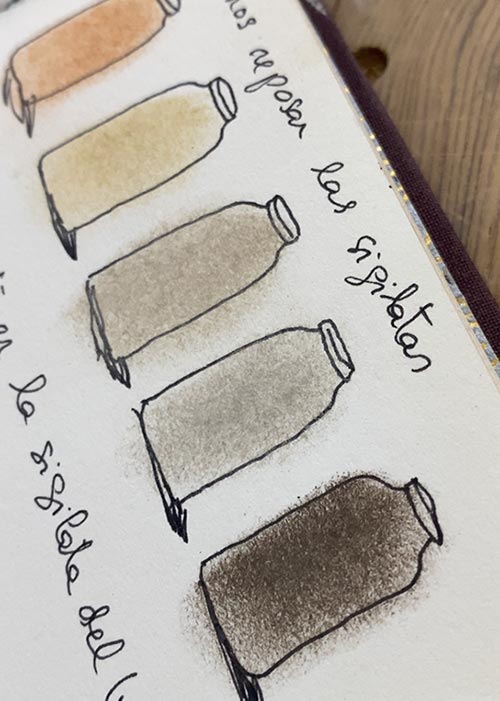 nos reposar las sigilatas
la sigilata del